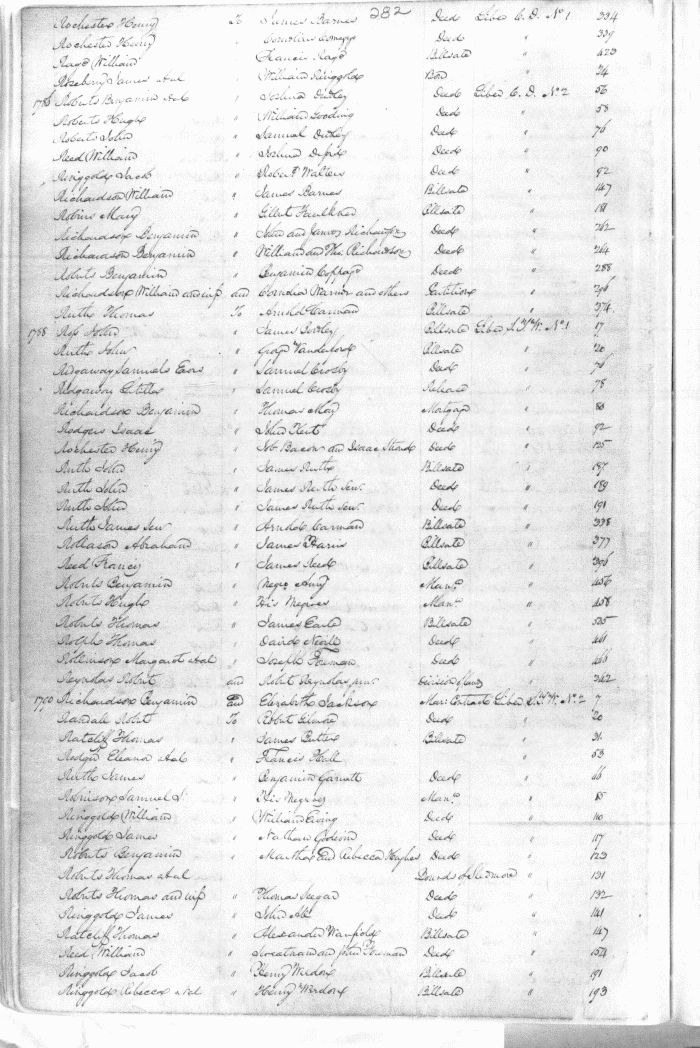 282
Rochester Henry To James Barnes Deed Liber C. D. No 1 334
Rochester Henry " Cornelius Comegys Deed " 339
William " Francis Billsale " 423
Rosebery James & al " William Ringgold Bon " 24
Roberts Benjamin & al " Joshua Dudley Deed Liber C. D. No 2 56
Roberts Hugh " William Gooding Deed " 58
Roberts John " Samuel Dudley Deed " 76
Reed William " Joshua Deed " 90
Ringgold Jacob " Robert Walters Deed " 92
Richardson William " James Barnes Billsale " 147
Robins Mary " Gilbert Faulkner Billsale " 181
Richardson Benjamin " John and James Richardson Deed " 262
Richardson Benjamin " William and Tho. Richardson Deed " 264
Roberts Benjamin " Benjamin Coppage Deed " 288
Richardson William and wife and Cornelia and others Partition " 296
Ruth Thomas To Arnold Carman Billsale " 374
1788 Ross John " James Billsale Liber S.T.W. No 1 17
Ruth John " George Vandeford Billsale " 20
Ridgaway Samuels Exors " Samuel Crosby Deed " 76
Ridgaway " Samuel Crosby Release " 78
Richardson Benjamin " Thomas May Mortgage " 80
Rodgers Isaac " John Deed " 92
Rochester Henry " Job Bacon and Isaac Deed " 135
Ruth John " James Ruth Billsale " 187
Ruth John " James Ruth Senr Deed " 189
Ruth John " James Ruth Senr Deed " 191
Ruth James Senr " Arnold Carman Billsale " 338
Abraham " James Harris Billsale " 377
Reed Francy " James Reed Billsale " 396
Roberts Benjamin " Negro Amy Manm " 456
Roberts Hugh " His Negroes Manm " 458
Roberts Thomas " James Earle Billsale " 525
Rolph Thomas " David Nevill Deed " 461
Margaret & al " Joseph Freeman Deed " 466
Reynolds Robert and Robert Reynolds junr Division of land " 342
1790 Richardson Benjamin and Elizabeth Jackson Mar. Contract Liber S.T.W. No 2 7
Randall Robert To Robert Gilmore Deed " 20
Ratcliff Thomas " James Butler Billsale " 31
Eleanor & al " Francis Hall " 53
Ruth James " Benjamin Garnett Deed " 66
Robinson Samuel " His Negroes Manm " 85
Ringgold William " William Ewing Deed " 110
Ringgold James " Nathan Deed " 117
Roberts Benjamin " Martha and Rebecca Hughes Deed " 123
Roberts Thomas & al " 131
Roberts Thomas and wife " Thomas Seegar Deed " 132
Ringgold James " John Deed " 141
Ratcliff Thomas " Alexander Billsale " 147
Reed William " and John Freeman Deed " 154
Ringgold Jacob " Henry Billsale " 191
Ringgold Rebecca & al " Henry Billsale " 193